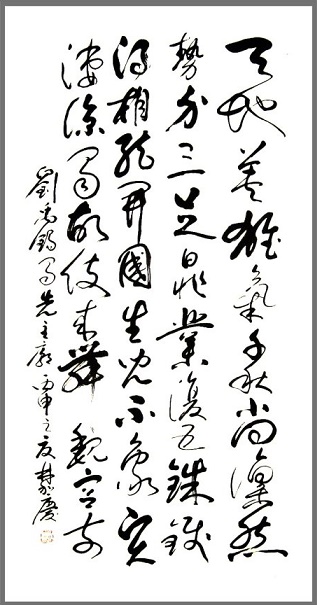 天地英雄氣千秋尚凛然
勢分三足鼎業復五銖錢
得相能開國生兒不象賢
淒涼蜀故伎來舞魏宮前
劉禹錫蜀先主廟丙申之夏